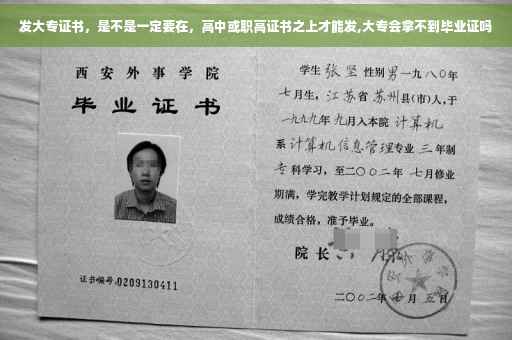 发大专证书，是不是一定要在，高中或职高证书之上才能发,大专会拿不到毕业证吗
西安外事学院
毕业证书
证书编号:0209130411
学生 张坚 性别 男 一九八〇年
七月生，江苏省 苏州县(市)人,于
一九九九年 九月入本院 计算机
系 计算机信息管理专业 三年制
专科学习，至二〇〇二年 七月修业
期满，学完教学计划规定的全部课程，
成绩合格，准予毕业。
院长
二〇〇二年 月 五日